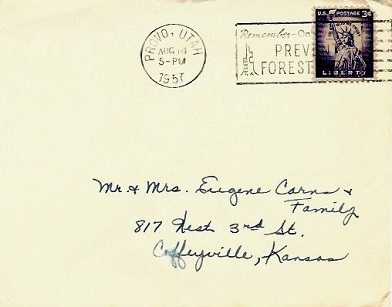 PROVO, UTAH
AUG 14
5-PM
1957
Remember-On
PREVE
FOREST
U.S. POSTAGE 3¢
LIBERTY
Mr. & Mrs. Eugene Carns &
Family
817 West 3rd St.
Coffeyville, Kansas